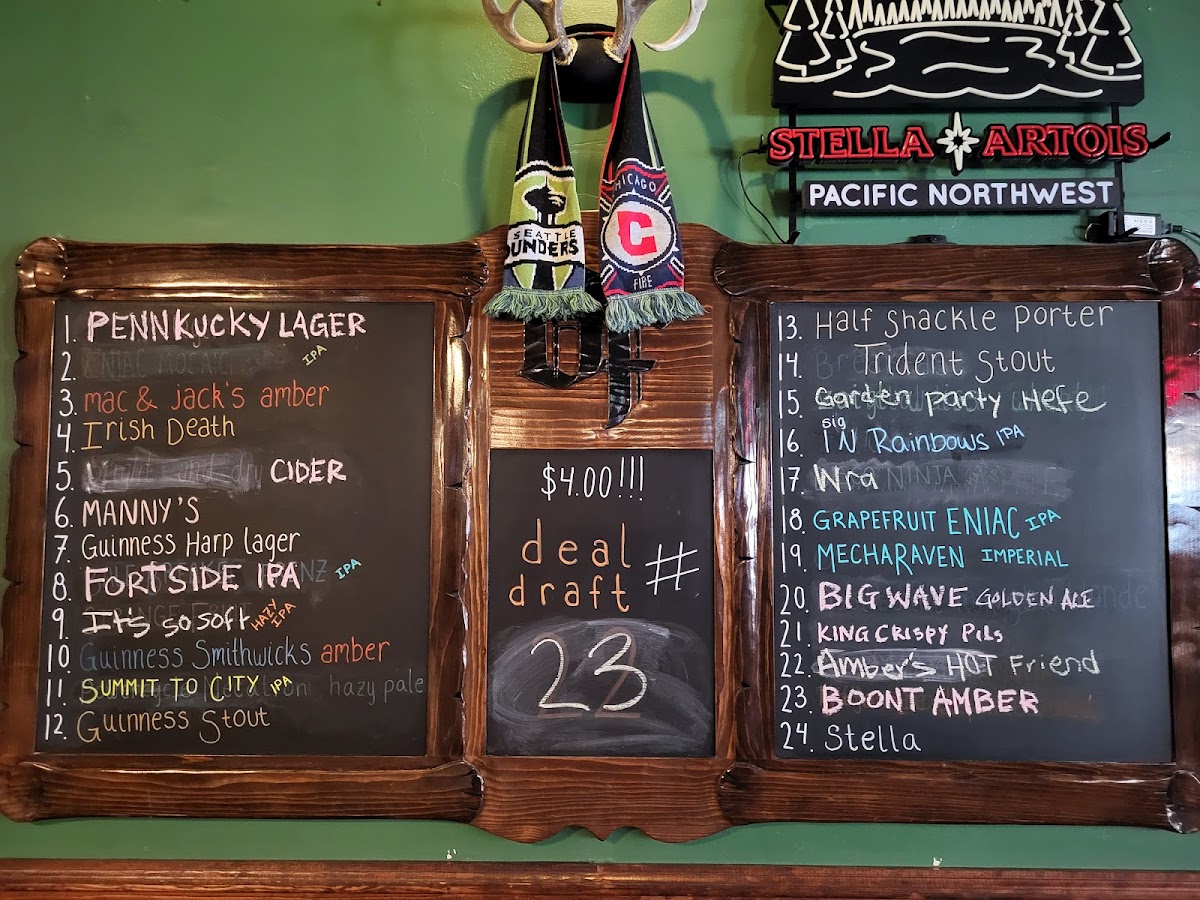 STELLA ARTOIS
PACIFIC NORTHWEST
SEATTLE
OUNDERS
CHICAGO
C
FIRE
1. PENNKUCKY LAGER
2. ENIAC MOSAIC IPA
3. mac & jack's amber
4. Irish Death
5. CIDER
6. MANNY'S
7. Guinness Harp lager
8. FORTSIDE IPA IPA
9. It's so soft HAZY IPA
10. Guinness Smithwicks amber
11. SUMMIT TO CITY IPA hazy pale
12. Guinness Stout
$4.00!!!
deal
draft #
23
13. Half Shackle Porter
14. Trident Stout
15. Garden party HEFE
16. sig IN Rainbows IPA
17. Wra NINJA
18. GRAPEFRUIT ENIAC IPA
19. MECHARAVEN IMPERIAL
20. BIG WAVE GOLDEN ALE
21. KING CRISPY PILS
22. Amber's HOT Friend
23. BOONT AMBER
24. Stella